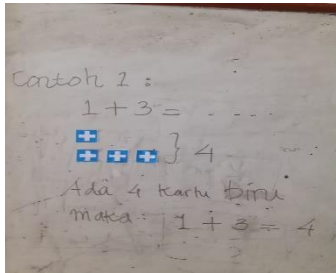 Contoh 1 :
1 + 3 = . . . .
} 4
Ada 4 kartu biru
maka : 1 + 3 = 4